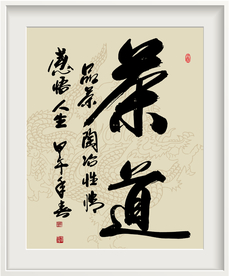 茶道
品茶陶冶性情
感悟人生 甲午年春